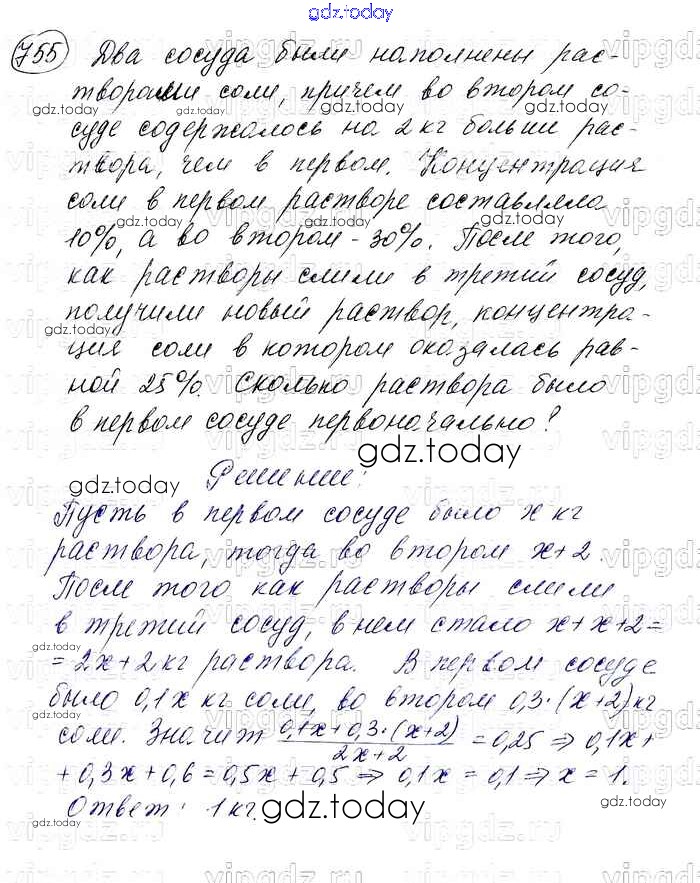 gdz.today
755 Два сосуда были наполнены рас-
творами соли, причем во втором со-
суде содержалось на 2 кг больше рас-
твора, чем в первом. Концентрация
соли в первом растворе составляла
10%, а во втором - 30%. После того,
как растворы слили в третий сосуд,
получили новый раствор, концентра-
ция соли в котором оказалась рав-
ной 25%. Сколько раствора было
в первом сосуде первоначально?
gdz.today
Решение:
Пусть в первом сосуде было x кг
раствора, тогда во втором x+2.
После того как растворы слили
в третий сосуд, в нем стало x+x+2=
=2x+2 кг раствора. В первом сосуде
было 0,1x кг соли, во втором 0,3·(x+2) кг
соли. Значит (0,1x+0,3·(x+2))/(2x+2) = 0,25 ⇒ 0,1x+
+0,3x+0,6=0,5x+0,5 ⇒ 0,1x=0,1 ⇒ x=1.
Ответ: 1 кг.
gdz.today
vipgdz.ru